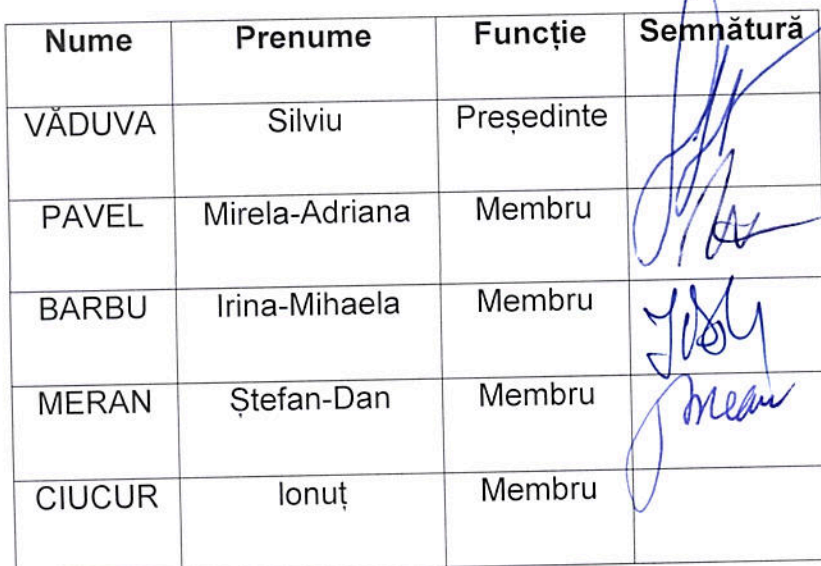 Nume Prenume Funcție Semnătură
VĂDUVA Silviu Președinte
PAVEL Mirela-Adriana Membru
BARBU Irina-Mihaela Membru
MERAN Ștefan-Dan Membru
CIUCUR Ionuț Membru